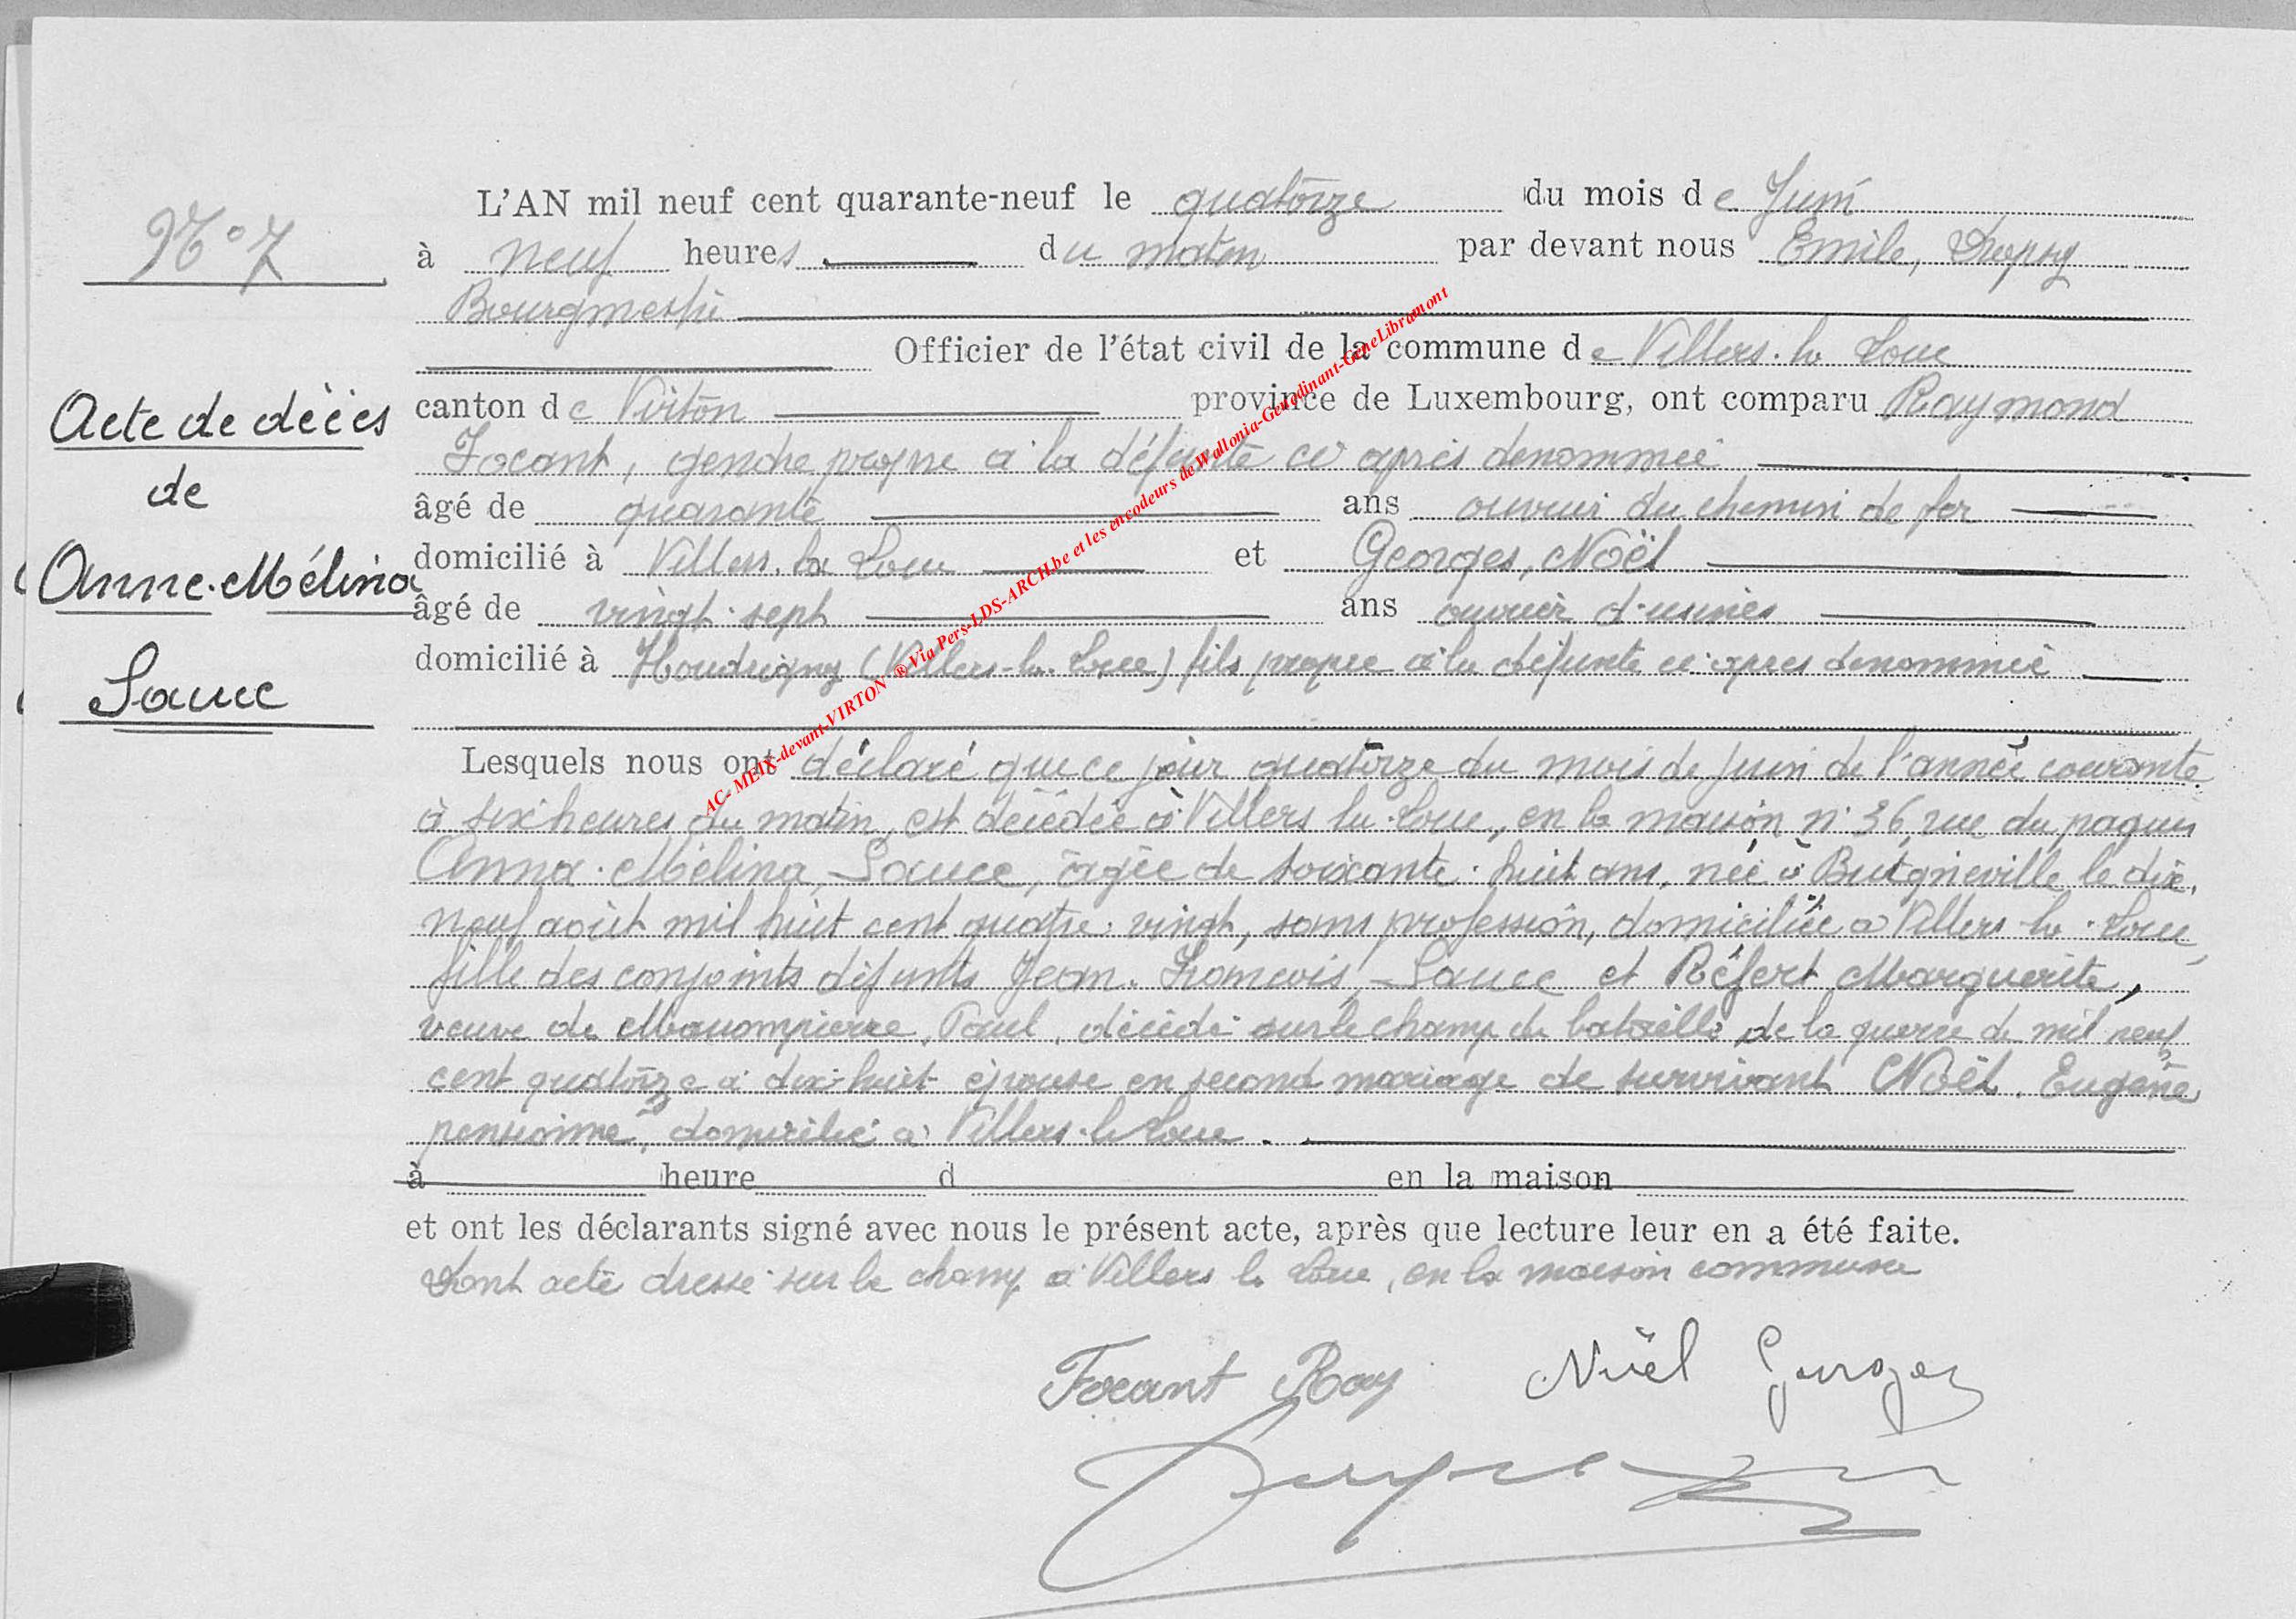 N° 7
Acte de décès
de
Anne-Mélina
Sauce
L'AN mil neuf cent quarante-neuf le quatorze du mois de Juin
à neuf heures du matin par devant nous Emile,
Bourgmestre
Officier de l'état civil de la commune de Villers-la-Loue
canton de Virton province de Luxembourg, ont comparu Raymond
Focant, gendre propre à la défunte ci après dénommée
âgé de quarante ans ouvrier du chemin de fer
domicilié à Villers-la-Loue et Georges, Noël
âgé de vingt-sept ans ouvrier d'usines
domicilié à Houdrigny (Villers-la-Loue) fils propre à la défunte ci-après dénommée
Lesquels nous ont déclaré que ce jour quatorze du mois de juin de l'année courante
à six heures du matin, est décédée à Villers-la-Loue, en la maison n° 36, rue du paquis
Anna-Mélina, Sauce, âgée de soixante-huit ans, née à Butgneville le dix-
neuf août mil huit cent quatre-vingt, sans profession, domiciliée à Villers-la-Loue
fille des conjoints défunts Jean-François, Sauce et Réfert Marguerite,
veuve de Mauompierre, Paul, décédé sur le champ de bataille de la guerre de mil neuf
cent quatorze à dix-huit épouse en second mariage de survivant Noël, Eugène
pensionné, domicilié à Villers-la-Loue.
à heure d en la maison
et ont les déclarants signé avec nous le présent acte, après que lecture leur en a été faite.
Dont acte dressé sur le champ à Villers-la-Loue, en la maison commune
Focant Ray Noël Georges
AC- MEIX-devant-VIRTON ® Via Pers-LDS-ARCH.be et les encodeurs de Wallonia-Genedinant-GeneLibramont